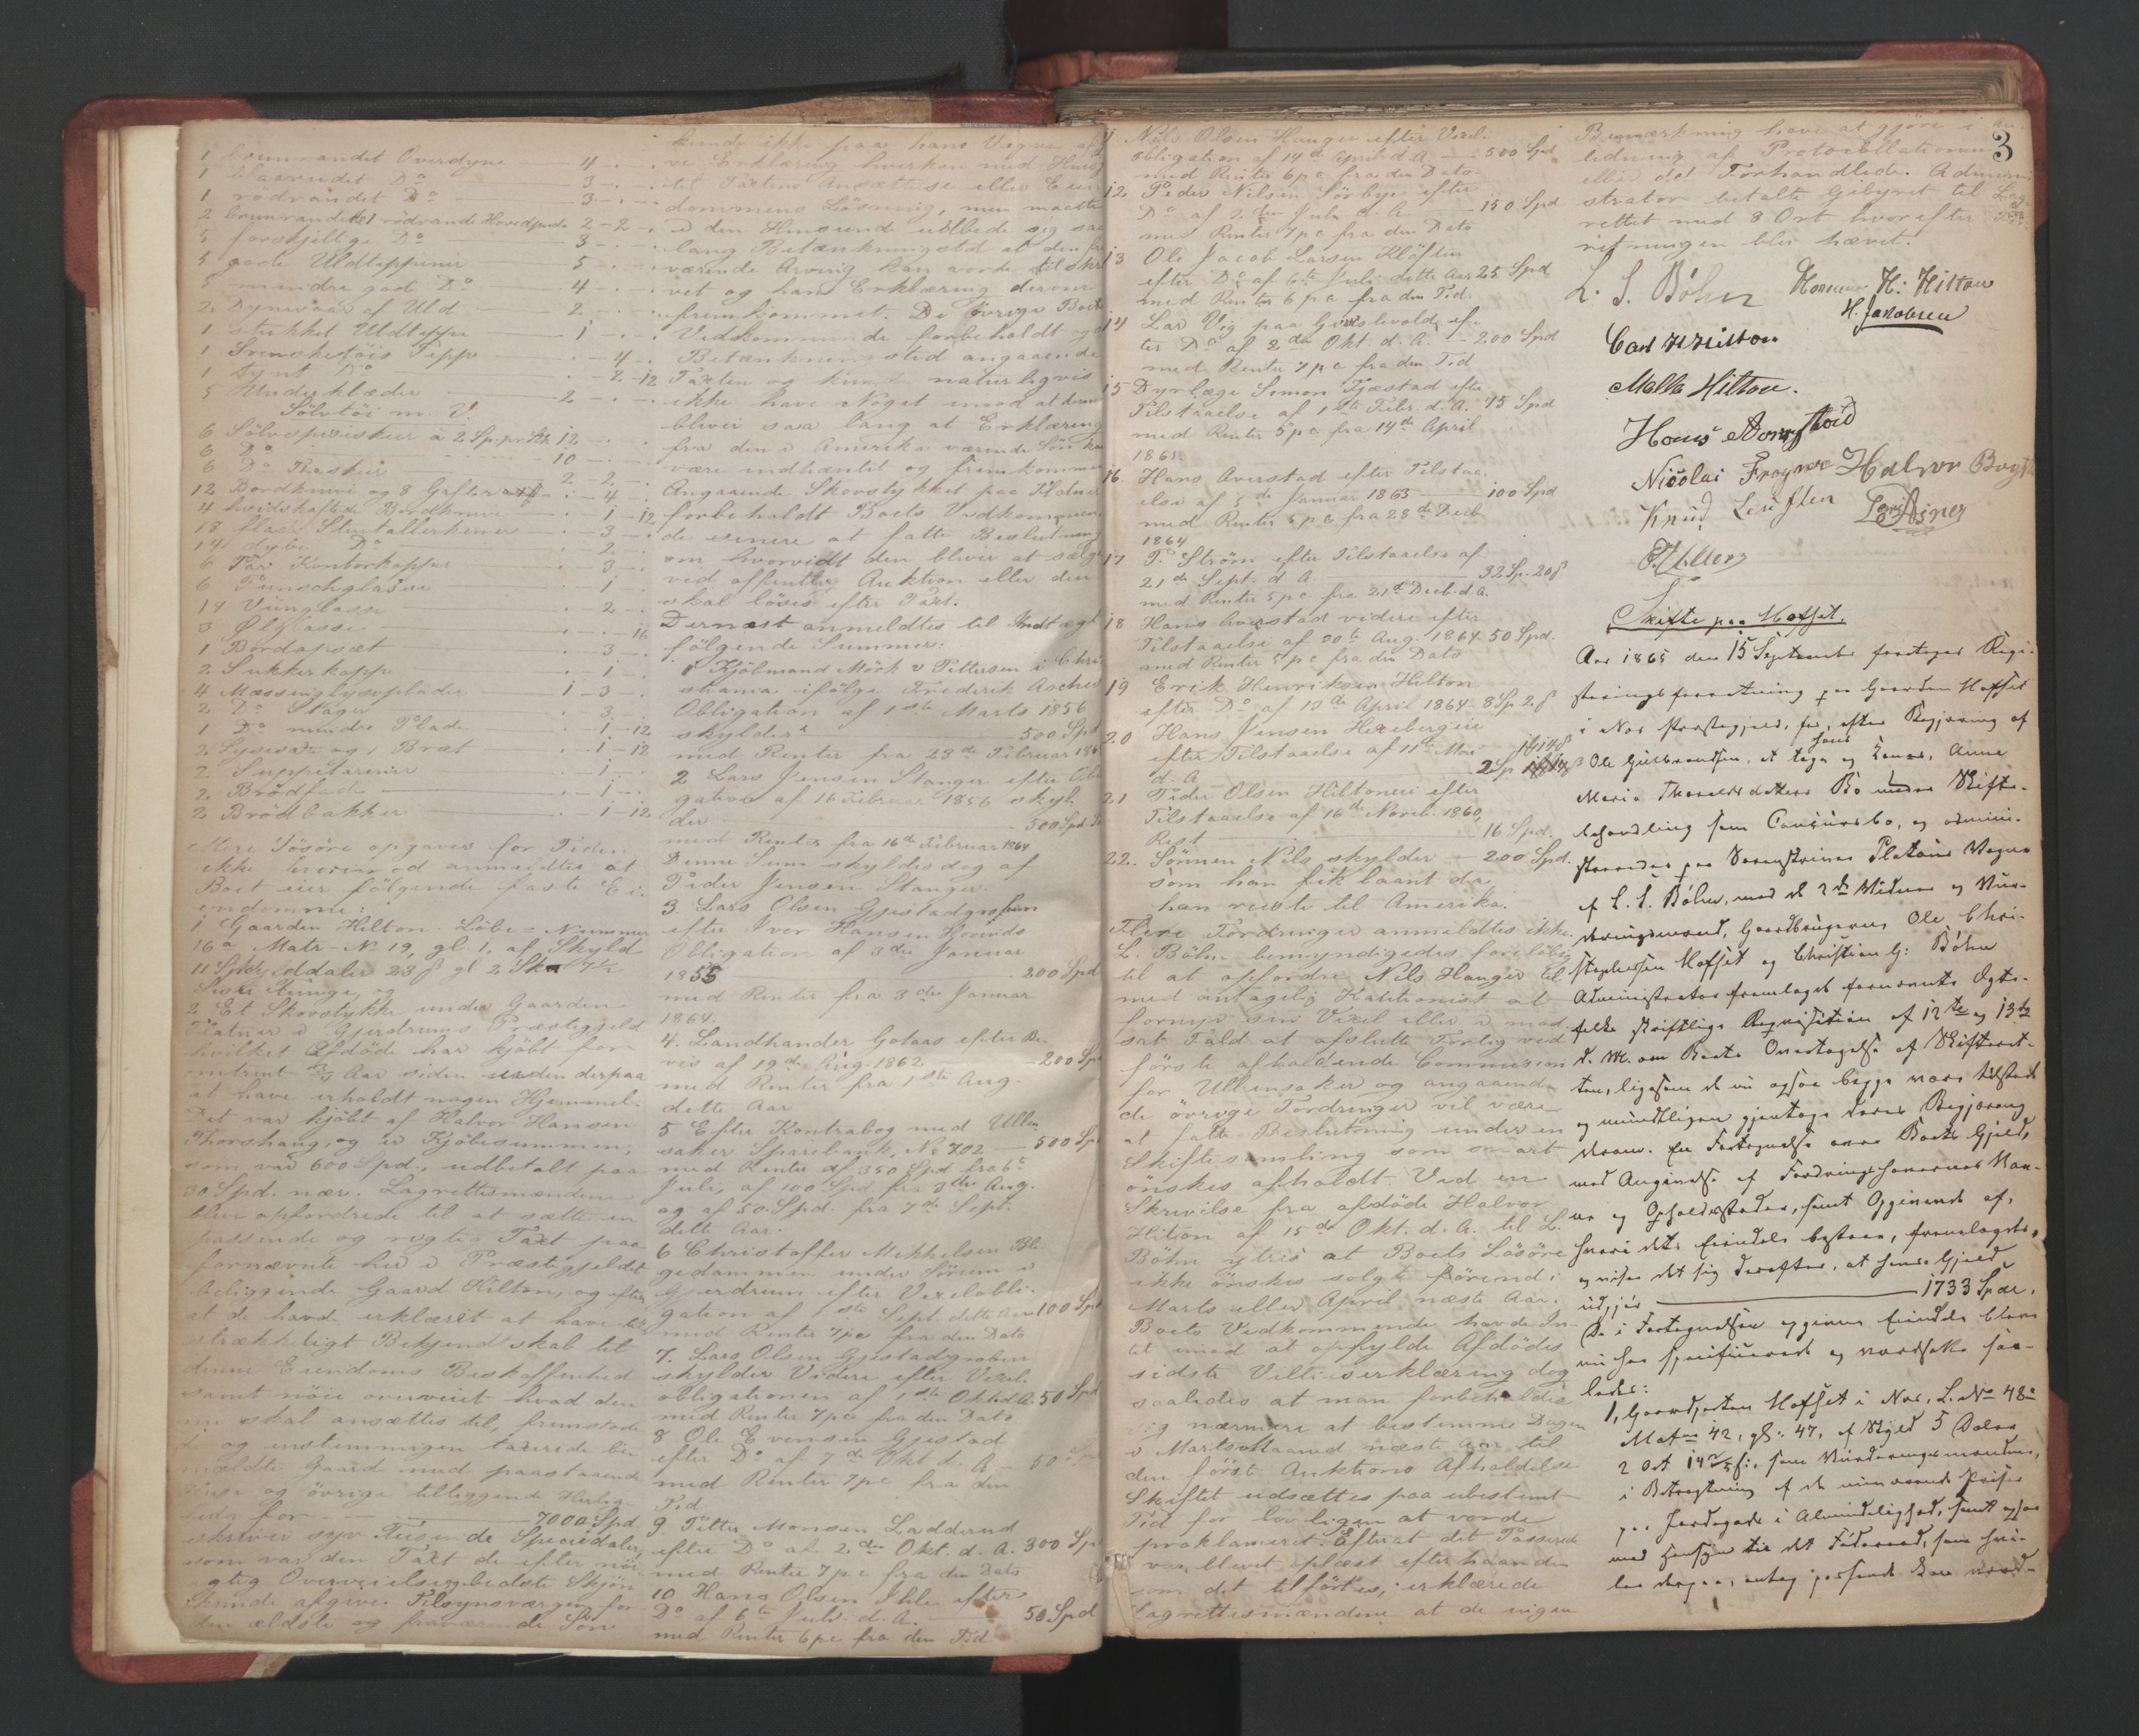 1 brunrandet Overdyne — 4 - . - .
1 blaarandet Do — 3 - . - .
1 rödrandet Do — 3 - . - .
2 brunrandet & 1 rödrandet Hovedpude 2 - 2 - .
5 forskjellige Do — 3 - . - .
5 gode Uldtæppener — 5 - . - .
5 mindre gode Do — 4 - . - .
2 Dynevaar af Uld — 2 - . - .
1 stukket Uldteppe — 1 - . - .
1 Svensketöis Teppe . - 4 - .
1 synt Do — . - 2 - 12
5 Underklæder — 2 - . - .
Sölvtöi m. V.
6 Sölvspiseskeer à 2 Sp. pr Stk 12 - . - .
6 Do — 10 - . - .
6 Do Theskeer — 2 - 2 - .
12 Bordknive og 8 Gafler . - 4 - .
4 hvidskaftede Bordknive . - 1 - 12
18 flade Stentallerkener . - 3 - .
14 dybe Do . - 2 - .
6 Par Kopper . - 3 - .
6 Punschglasse . - 1 - .
14 Vinglasse . - 2 - .
3 Ølglasse . - . - 16
1 Bordopsæt . - 3 - .
2 Sukkerkoppe . - 1 - .
4 Messinglyseplader 1 - 3 - .
2 Do Stager . - 3 - .
1 Do mindre Plade . - 1 - 12
2 Lysesaxe og 1 Bræt . - 1 - 12
2 Suppeterriner . - 1 - .
2 Brödfade . - 1 - .
2 Brödbakker . - 1 - 12
Mere Lösöre opgaves for Tiden
ikke hvorimod anmeldtes at
Boet eier fölgende faste Ei-
endomme:
1 Gaarden Hilton Löbe-Nummer
16a Matr-No 19, gl. 1, af Skyld
11 Speciedaler 23 ß gl 2 Skp
og
2 Et Skovstykke under Gaarden
i Gjerdrums Præstegjeld
hvilket Afdöde har kjöbt for
omtrent Aar siden uden derpaa
at have erholdt nogen Hjemmel.
Det var kjöbt af Halvor Hansen
Thorshaug, og er Kjöbesummen,
som var 600 Spd., udbetalt paa
30 Spd. nær. Lagrettesmændene
blive opfordrede til at sætte en
passende og rigtig Taxt paa
fornævnte her i Præstegjeldet
beliggende Gaard Hilton, og efter
at de havde erklæret at have til-
strækkeligt Bekjendtskab til
denne Eiendoms Beskaffenhed
samt nöie overveiet hvad den
nu skal ansættes til, fremstode
de og enstemmigen taxerede be-
meldte Gaard med paastaaende
Huse og övrige tilliggende Herlig-
heder for — 7000 Spd
skriver syv Tusinde Speciedaler,
som var den Taxt de efter nöi-
agtig Overveielse bedste Skjön
kunde afgive. Tilsynsværgen for
den ældste og fraværende Sön
kunde ikke paa hans Vegne afgi-
ve Erklæring hverken med Hensyn
til Taxtens Ansættelse eller Eien-
dommens Lösning, men maatte
i den Henseende udbede sig saa
lang Betænkningstid at den fra-
værende Arving kan vorde tilskre-
vet og hans Erklæring derom
fremkommet. De övrige Boets
Vedkommende forbeholdt sig
Betænkningstid angaaende
Taxten og kunde naturligvis
ikke have Noget imod at denne
bliver saa lang at Erklæring
fra den i Amerika værende Sön kan
være indhentet og fremkommen
Angaaende Skovstykket paa
forbeholdt Boets Vedkommen-
de senere at fatte Beslutning
om hvorvidt den bliver at sælge
ved offentlig Auktion eller den
skal löses efter Taxt.
Dernæst anmeldtes til Indtægt
fölgende Summer:
1 Kjöbmand Mörk & Pettersen i Chri-
stiania ifölge Frederik Asches
Obligation af 1ste Marts 1856
skylder — 500 Spd
med Renter fra 23de Februar 186
2 Lars Jensen Stanger efter Obli-
gation af 16 Februar 1856 skyl-
der — 500 Spd
med Renter fra 16de Februar 1864
Denne Sum skyldes dog af
Peder Jensen Stanger.
3. Lars Olsen Gjestadgrophen
efter Iver Hansen Hovinds
Obligation af 3die Januar
1855 — 200 Spd
med Renter fra 3die Januar
1864.
4. Landhandler Gotaas efter Be-
vis af 19de Aug. 1862 — 200 Spd
med Renter fra 1ste Aug.
dette Aar
5 Efter Kontrabog med Ullen-
saker Sparebank, No 702 — 500 Spd
med Renter af 350 Spd fra 6te
Juli, af 100 Spd fra 3die Aug.
og af 50 Spd. fra 7de Sept.
dette Aar.
6 Christoffer Mikkelsen Bli-
gedammen under Sörum i
Gjerdrum efter Vexelobli-
gation af 1ste Sept. dette Aar 100 Spd
med Renter 7pc fra den Dato
7. Lars Olsen Gjestadgrophen
skylder Videre efter Vexel-
obligationen af 1ste Okt. d. A. 50 Spd
med Renter 7pc fra den Dato
8 Ole Evensen Gjestad
efter Do af 7de Okt d. A. — 50
med Renter 7pc fra den
Tid
9. Petter Monsen Ladderud
efter Do af 2den Okt. d. A. 300 Sp
med Renter 7pc fra den Dato
10 Hans Olsen Ihle efter
Do af 6te Juli d. A. — 50 Spd
med Renter 6pc fra den Tid
11 Nils Olsen Hauger efter Vexel-
obligation af 14de April d. A. — 500 Spd
med Renter 6pc fra den Dato.
12. Peder Nilsen Sörbye efter
Do af 2den Juli d. A. — 150 Spd
med Renter 7pc fra den Dato
13 Ole Jacob Larsen Klöften
efter Do af 6te Juli dette Aar 25 Spd
med Renter 6pc fra den Tid.
14 Lars Vig paa Gislevold, ef-
ter Do af 2den Okt. d. A. — 200 Spd
med Renter 7pc fra den Tid
15 Dyrlæge Simon Fjæstad efter
Tilstaaelse af 1ste Febr. d. A. 75 Spd
med Renter 5pc fra 14de April
1865
16. Hans Averstad efter Tilstaa-
else af 5de Januar 1863 — 100 Spd
med Renter 5pc fra 28de Decb
1864
17 P. Ström efter Tilstaaelse af
21de Sept. d A. — 32 Sp. 20 ß
med Renter 5pc fra 21de Decb. d A.
18 Hans Averstad videre efter
Tilstaaelse af 20de Aug. 1864 50 Spd.
med Renter 5pc fra den Dato
19 Erik Henriksen Hilton
efter Do af 10de April 1864. 8 Sp. 2 ß
20 Hans Jensen Hexebergeie
efter Tilstaaelse af 11te Mai
d. A. — 2 Sp
21 Peder Olsen Hiltoneie efter
Tilstaaelse af 16de Novb. 1860,
Rest — 16 Spd.
22. Sönnen Nils skylder — 200 Spd.
som han fik laant da
han reiste til Amerika.
Flere Fordringer anmeldtes ikke.
L. Böhn bemyndigedes foreløbig
til at opfordre Nils Hauger til
med antagelig Kautionist at
fornye sin Vexel eller i mod-
sat Fald at afslutte Forlig ved
förste afholdende Commission
for Ullensaker og angaaende
de övrige Fordringer vil være
at fatte Beslutning under en
Skiftesamling som snart
önskes afholdt. Ved en
Skrivelse fra afdöde Halvor
Hilton af 15de Okt. d. A. til L.
Böhn ytres at Boets Lösöre
ikke önskes solgt förend i
Marts eller April næste Aar.
Boets Vedkommende havde In-
tet imod at opfylde Afdödes
sidste Villieserklæring dog
saaledes at man forbeholdt
sig nærmere at bestemme Dagen
i Marts Maaned næste Aar til
den först Auktions Afholdelse
Skiftet udsættes paa ubestemt
Tid for lovligen at vorde
proklameret. Efterat det Passerede
var blevet oplæst efterhaanden
som det tilförtes, erklærede
Lagrettesmændene at de ingen
3
Bemærkning have at gjöre i An-
ledning af Protocollationen
eller det Forhandlede. Admini-
strator betalte Gebyret til Lag-
rettet med 3 Ort hvorefter For-
retningen blev hævet.
L. S. Böhn H. Hilton
H. Jakobsen
Carl H Hilton
Mella Hilton.
Hans
Nicolai Frogner Halvor
Knud
Skifte paa Hofset.
Aar 1865 den 15 September foretoges Regi-
streringsforretning paa Gaarden Hofset
i Nes Præstegjeld, for, efter Begjering af
Ole Gulbrandsen, at tage hans og Kones, Anne
Marie Thorvaldsdatters Bo under Skifte-
behandling som Concursbo, og admini-
streredes paa Sorenskriver Platous Vegne
af L. S. Böhn, med de 2de Vidner og Vur-
deringsmænd, Gaardbrugerne Ole Chri-
stophersen Hofset og Christian G: Böhn
Administrator fremlagde fornævnte Ægte-
folks skriftlige Requisition af 12te og 13de
d. M. om Boets Overtagelse af Skifteret-
ten, ligesom de nu ogsaa begge vare tilstede
og mundtligen gjentoge deres Begjering
derom. En Fortegnelse over Boets Gjeld,
med Angivelse af Fordringshavernes Nav-
ne og Opholdssteder, samt Opgivende af,
hvori dets Eiendele bestaar, fremlagdes,
og viser det sig derefter, at hans Gjeld
udgjör — 1733 Spdr.
De i Fortegnelsen opgivne Eiendele bleve
nu her specificerede og værdsatte saa-
ledes:
1, Gaardparten Hofset i Nes, L. No 48a
Mat. 42, gl: 47, af Skyld 5 Daler
2 Ort 14 ß:, som Vurderingsmændene,
i Betragtning af de nuværende Priser
paa Jordegods i Almindelighed, samt ogsaa
med Hensyn til det Föderaad, som hvi-
ler derpaa, antog passende kan værd-